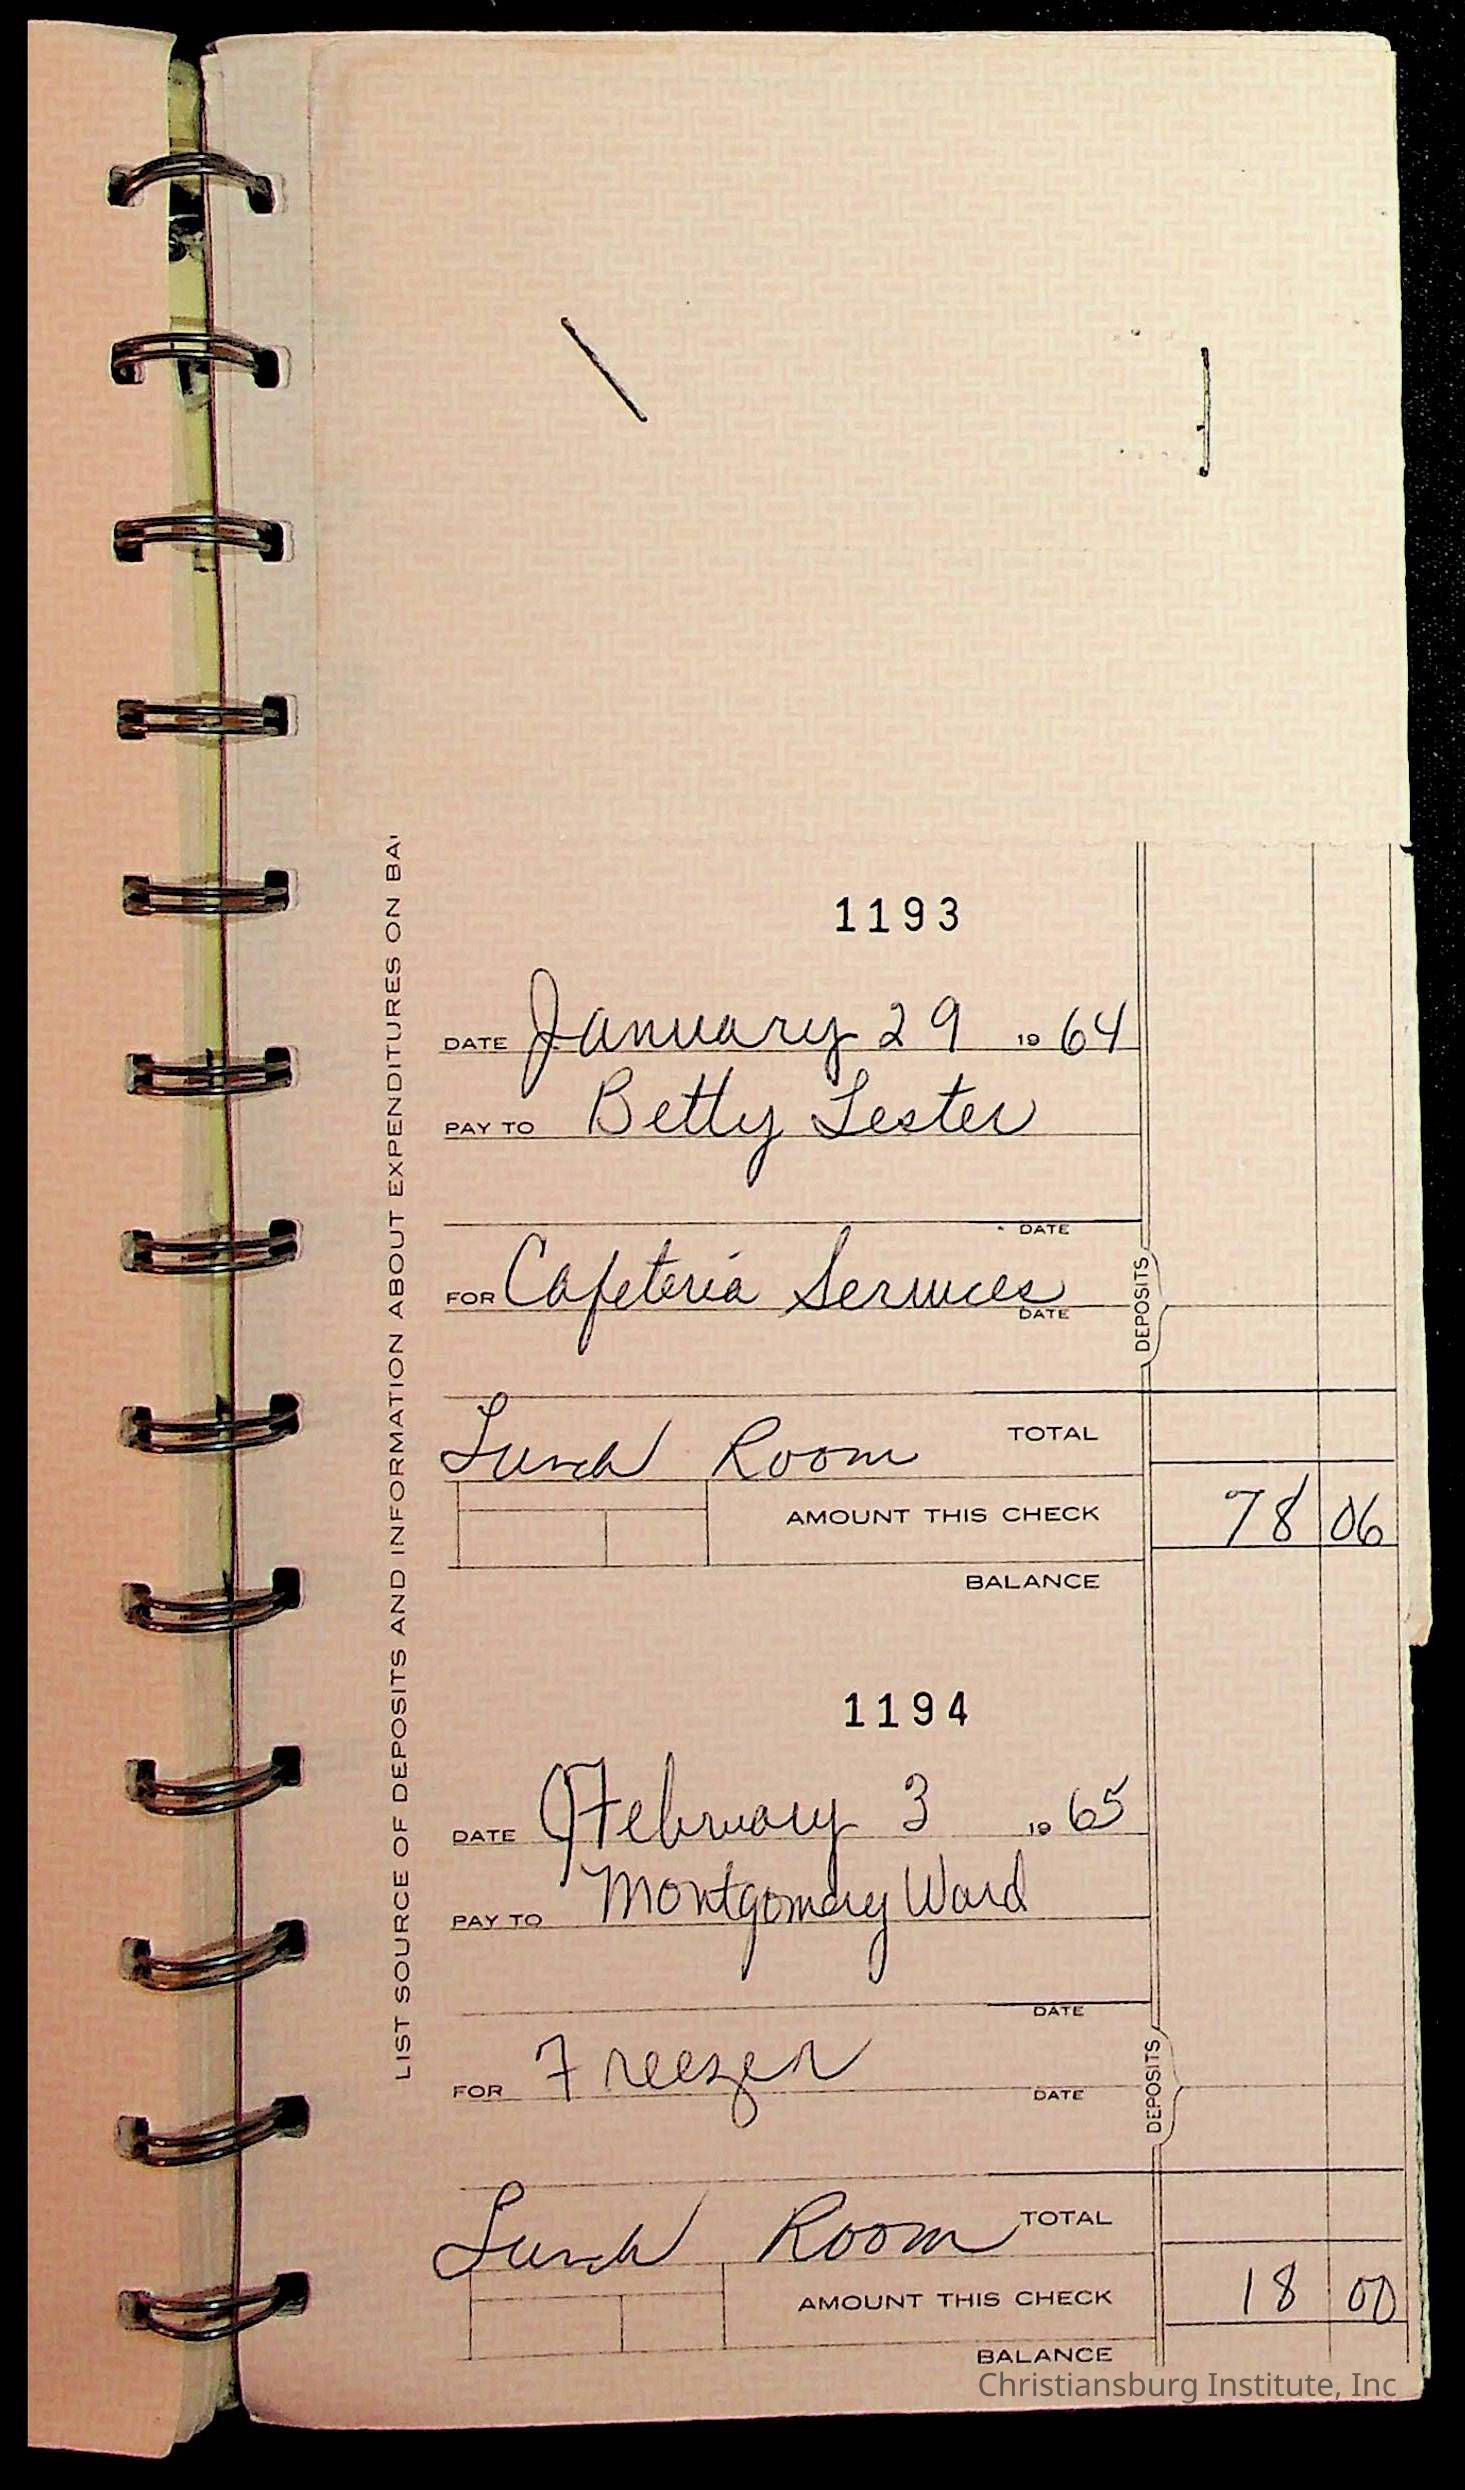 LIST SOURCE OF DEPOSITS AND INFORMATION ABOUT EXPENDITURES ON BA
1193
DATE January 29 19 64
PAY TO Betty Lester
DATE
FOR Cafeteria Services
DATE
DEPOSITS
Lunch Room TOTAL
AMOUNT THIS CHECK 78 06
BALANCE
1194
DATE February 3 19 65
PAY TO Montgomery Ward
DATE
FOR Freezer
DATE
DEPOSITS
Lunch Room TOTAL
AMOUNT THIS CHECK 18 00
BALANCE
Christiansburg Institute, Inc